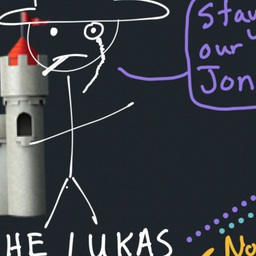 Stay
our
Jon
HE LUKAS
No